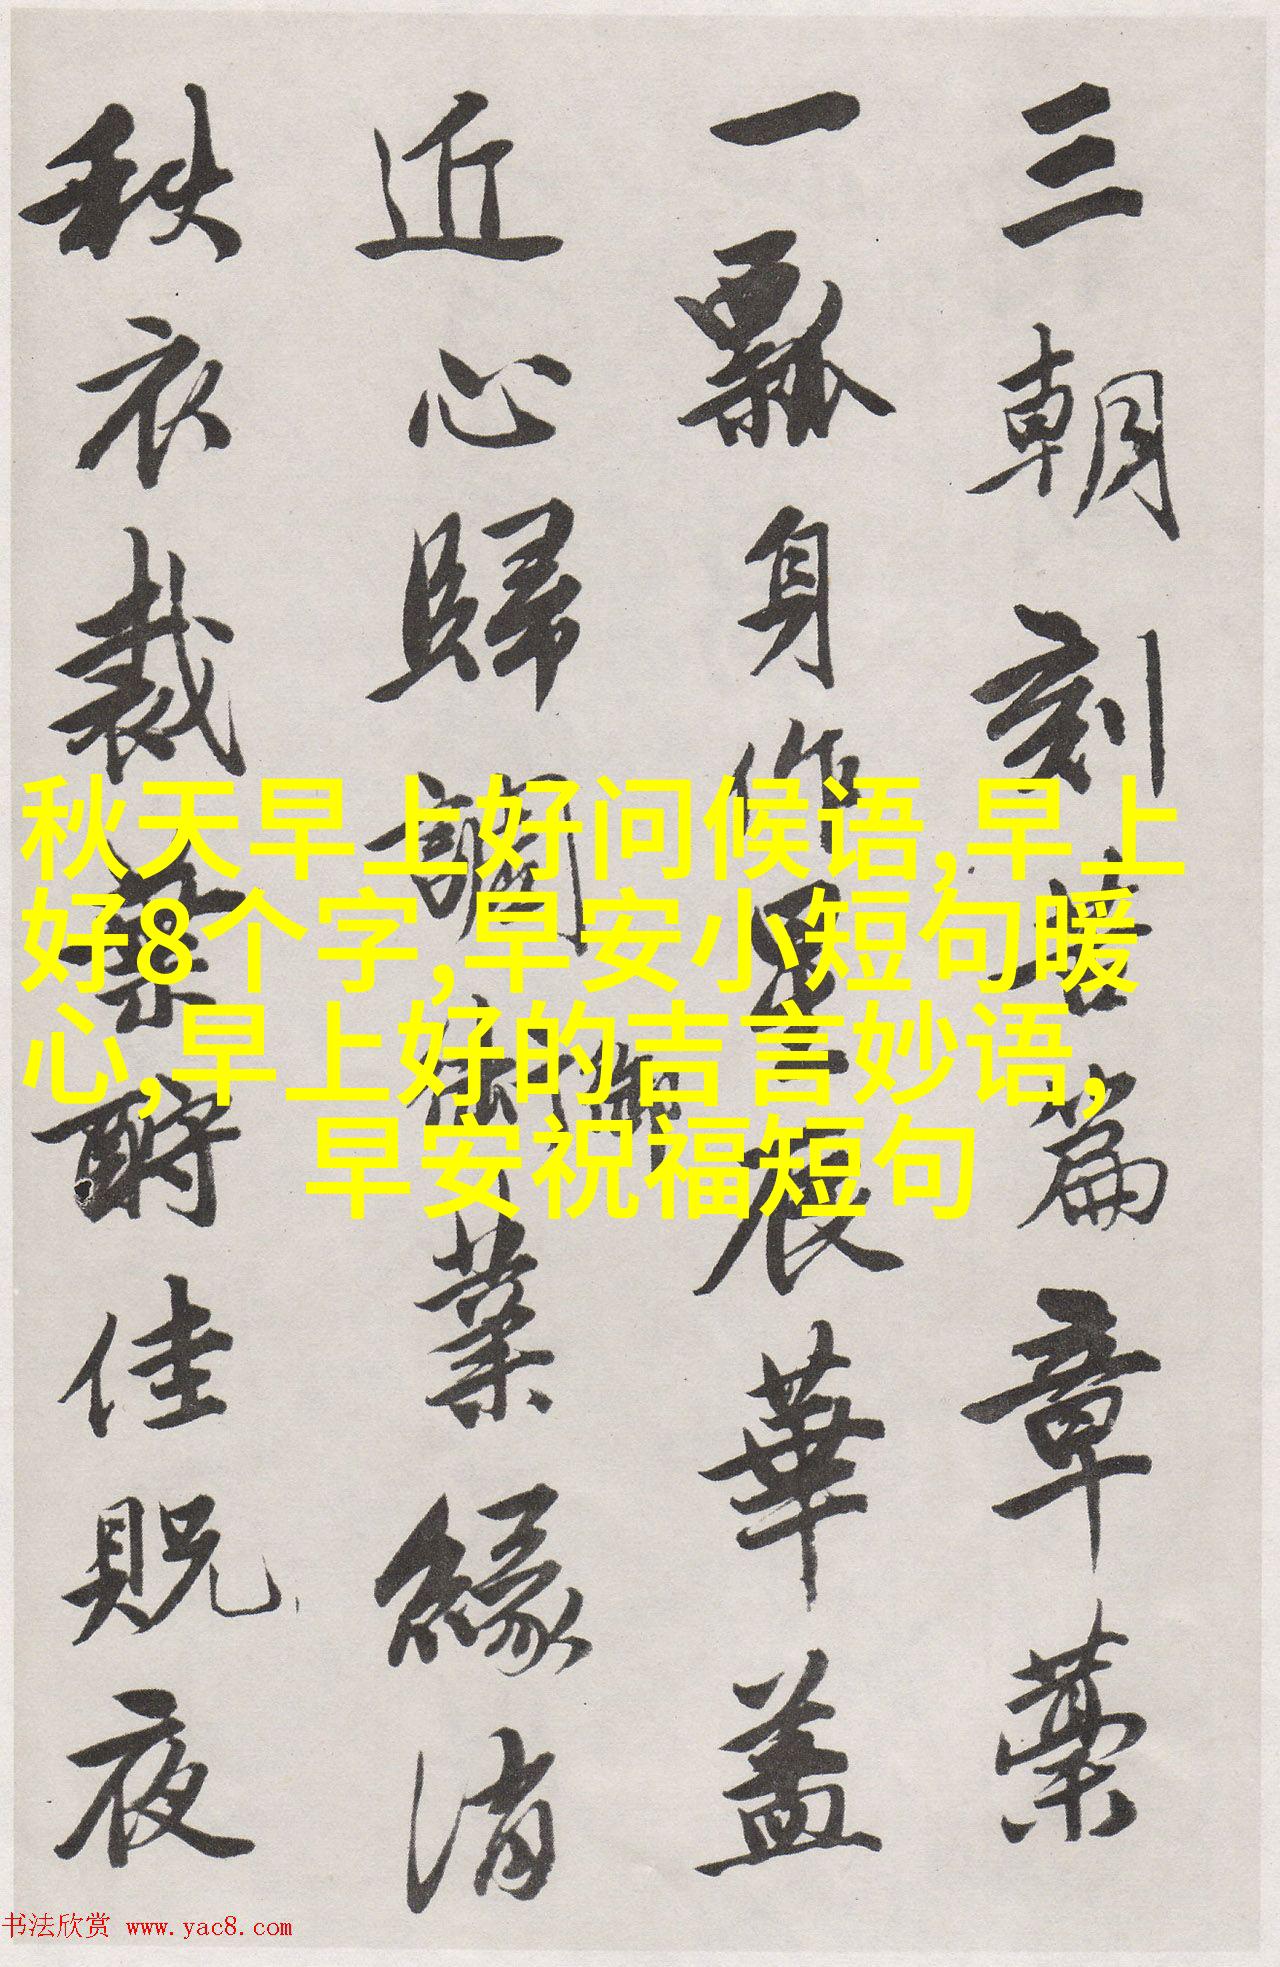 三朝刻篇章藁
一瓢身作華蓋
近心歸調業緣消
衣裁佳貺夜
秋天早上好问候语,早上
好8个字,早安小短句暖
心,早上好的吉言妙语,
早安祝福短句
书法欣赏 www.yac8.com